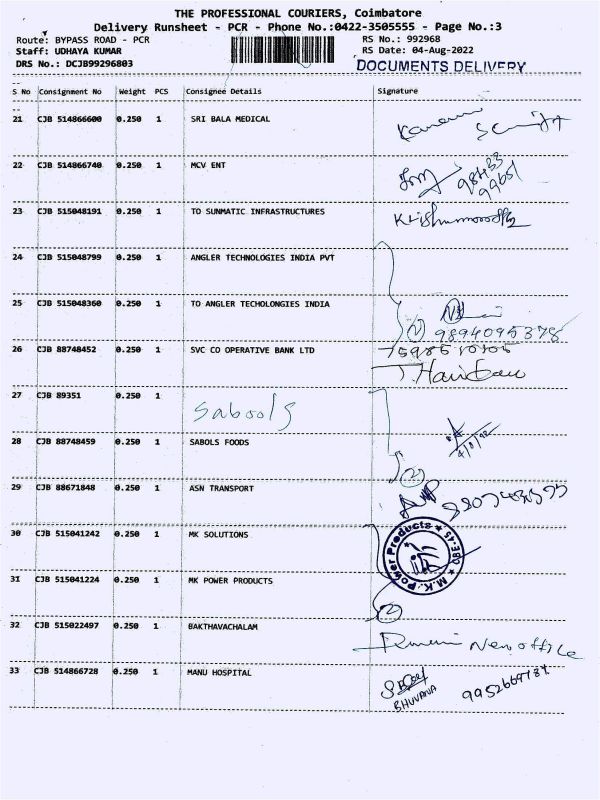 THE PROFESSIONAL COURIERS, Coimbatore
Delivery Runsheet - PCR - Phone No.:0422-3505555 - Page No.:3
Route: BYPASS ROAD - PCR RS No.: 992968
Staff: UDHAYA KUMAR RS Date: 04-Aug-2022
DRS No.: DCJB99296803 DOCUMENTS DELIVERY
S No Consignment No Weight PCS Consignee Details Signature
21 CJB 514866600 0.250 1 SRI BALA MEDICAL
22 CJB 514866740 0.250 1 MCV ENT
23 CJB 515048191 0.250 1 TO SUNMATIC INFRASTRUCTURES
24 CJB 515048799 0.250 1 ANGLER TECHNOLOGIES INDIA PVT
25 CJB 515048360 0.250 1 TO ANGLER TECHOLONGIES INDIA
(2) 9894095378
26 CJB 88748452 0.250 1 SVC CO OPERATIVE BANK LTD
27 CJB 89351 0.250 1
Sabools
28 CJB 88748459 0.250 1 SABOLS FOODS
(2)
29 CJB 88671848 0.250 1 ASN TRANSPORT
30 CJB 515041242 0.250 1 MK SOLUTIONS
M.K. Power Products
31 CJB 515041224 0.250 1 MK POWER PRODUCTS
(2)
32 CJB 515022497 0.250 1 BAKTHAVACHALAM
New office
33 CJB 514866728 0.250 1 MANU HOSPITAL
BHUVANA